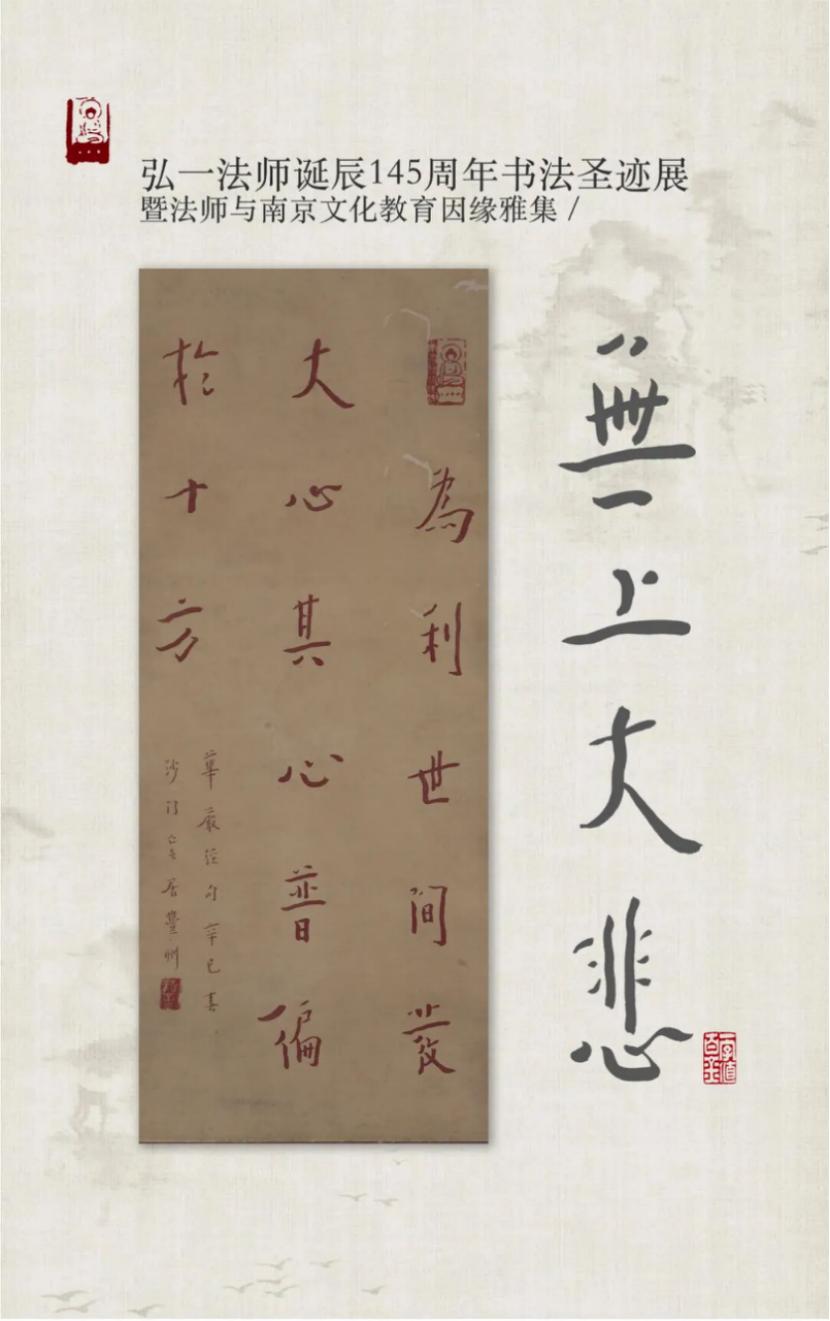 弘一法师诞辰145周年书法圣迹展
暨法师与南京文化教育因缘雅集 /
無上大悲
為利世間發
大心其心普徧
於十方
華嚴經句辛巳
沙門居豐州